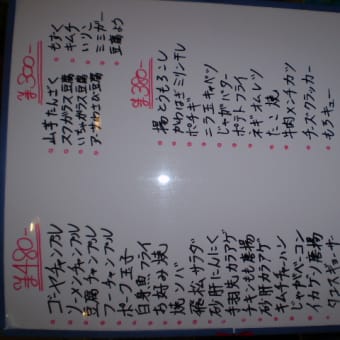 ¥300-
もずく
キムチ
いりこ
ミミガー
豆腐よう
山芋たんざく
スクガラス豆腐
いちゃガラス豆腐
アーサわさび豆腐
¥380-
揚とうもろこし
かわはぎミリン干し
ポチギ
ニラ玉キャベツ
じゃがバター
ポテトフライ
ネギオムレツ
たこ焼
牛肉メンチカツ
チーズクラッカー
もろキュー
¥480-
ゴーヤチャンプル
ソーメンチャンプル
豆腐チャンプル
フーチャンプル
ポーク玉子
白身魚フライ
お好み焼
焼ソバ
サラダ
砂肝にんにく
手羽先カラアゲ
チキンもも唐揚
砂肝カラアゲ
キムチチャーハン
じゃがベーコン
イカゲソ唐揚